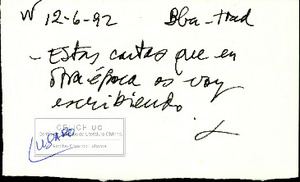 W 12-6-92 Bba-trad
- Estas cartas que en
otra época os voy
escribiendo.
CELICH UC
USADO